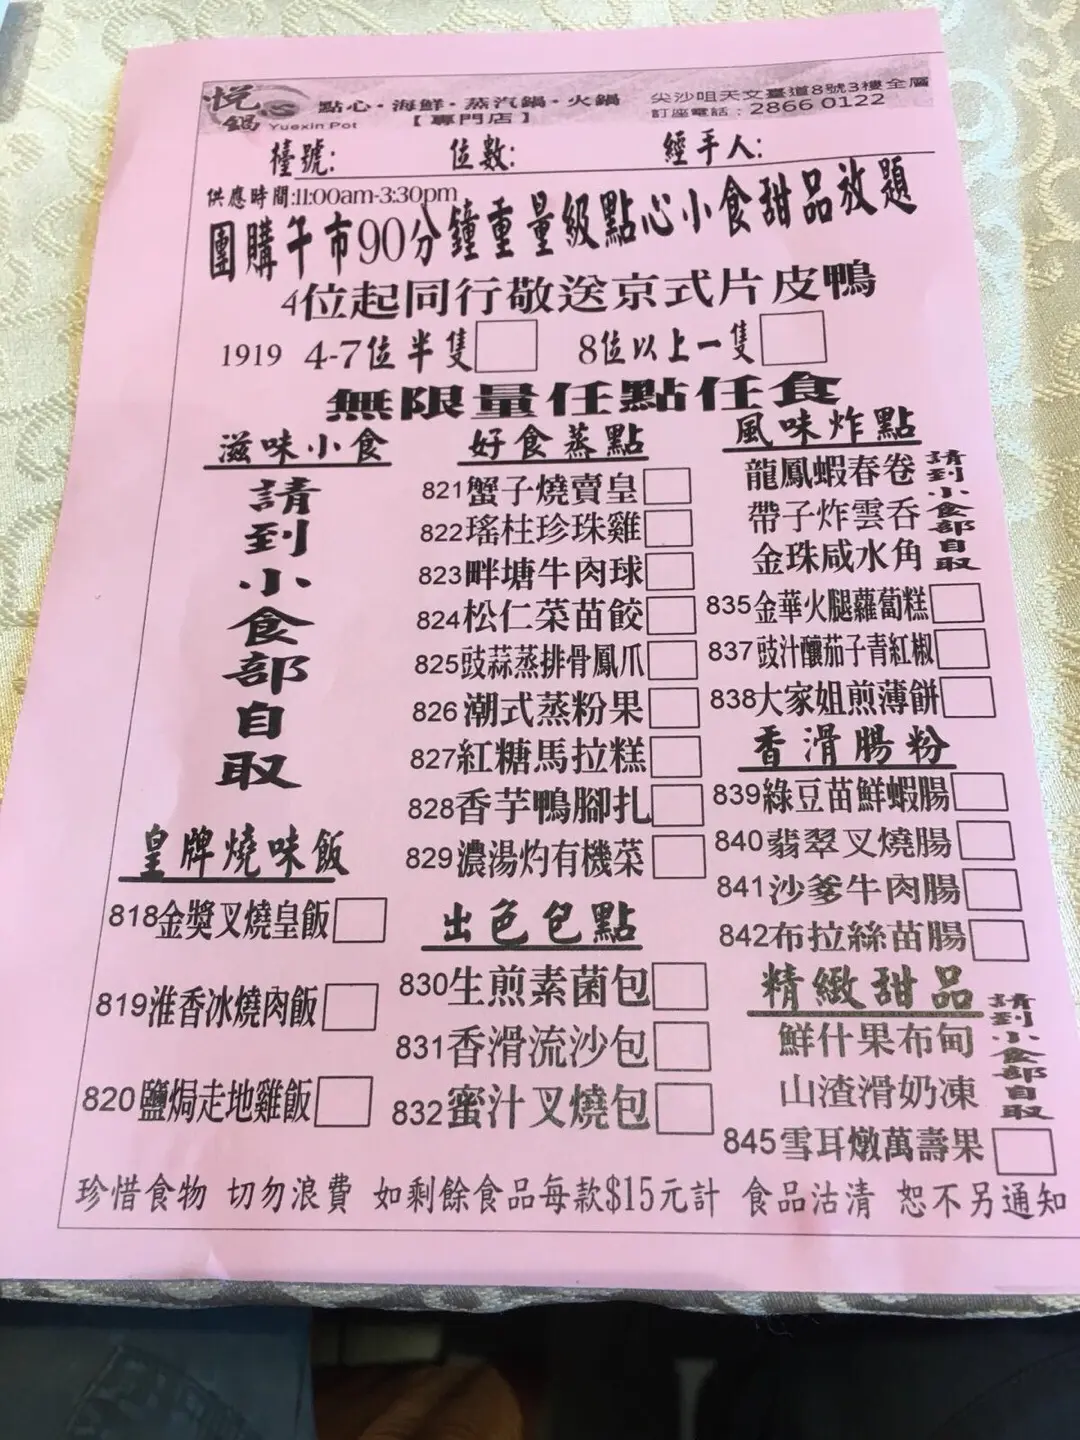 悦心鍋
Yuexin Pot
點心·海鮮·蒸汽鍋·火鍋
【專門店】
尖沙咀天文臺道8號3樓全層
訂座電話：2866 0122
檯號: 位數: 經手人:
供應時間:11:00am-3:30pm
團購午市90分鐘重量級點心小食甜品放題
4位起同行敬送京式片皮鴨
1919 4-7位半隻 8位以上一隻
無限量任點任食
滋味小食
請到小食部自取
皇牌燒味飯
818金獎叉燒皇飯
819淮香冰燒肉飯
820鹽焗走地雞飯
好食蒸點
821蟹子燒賣皇
822瑤柱珍珠雞
823畔塘牛肉球
824松仁菜苗餃
825豉蒜蒸排骨鳳爪
826潮式蒸粉果
827紅糖馬拉糕
828香芋鴨腳扎
829濃湯灼有機菜
出色包點
830生煎素菌包
831香滑流沙包
832蜜汁叉燒包
風味炸點
龍鳳蝦春卷
帶子炸雲吞
金珠咸水角
請到小食部自取
835金華火腿蘿蔔糕
837豉汁釀茄子青紅椒
838大家姐煎薄餅
香滑腸粉
839綠豆苗鮮蝦腸
840翡翠叉燒腸
841沙爹牛肉腸
842布拉絲苗腸
精緻甜品
鮮什果布甸
山渣滑奶凍
請到小食部自取
845雪耳燉萬壽果
珍惜食物 切勿浪費 如剩餘食品每款$15元計 食品沽清 恕不另通知